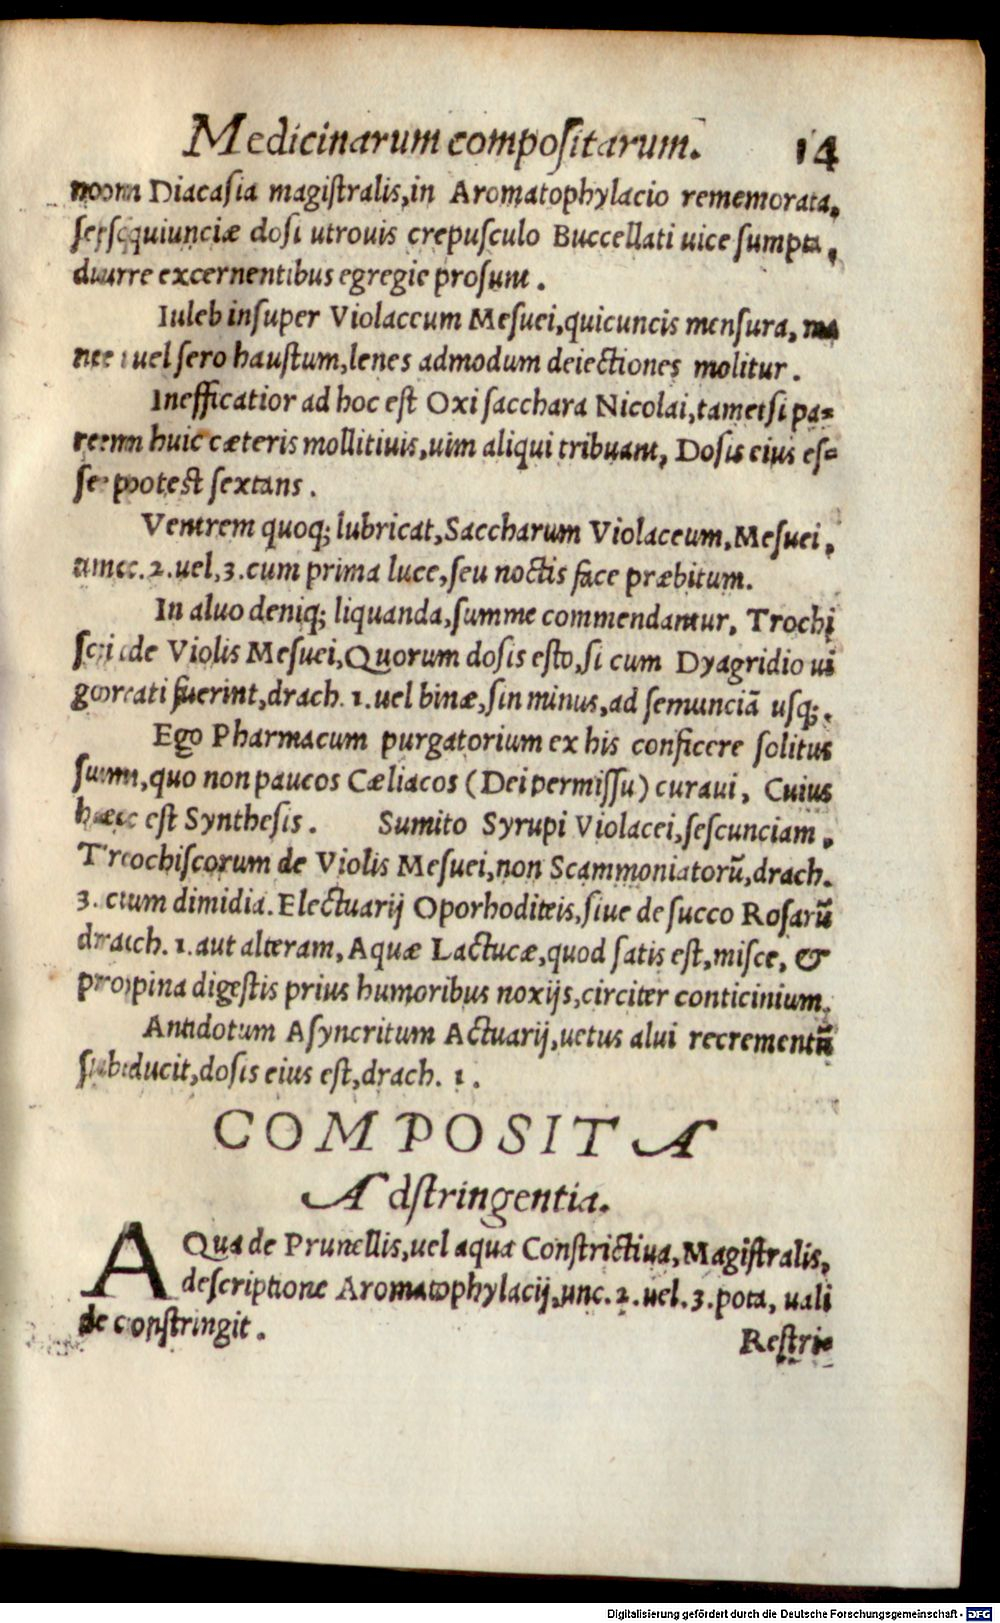 Medicinarum compositarum. 14
Diacasia magistralis, in Aromatophylacio rememorata,
sesquiunciæ dosi utrouis crepusculo Buccellati uice sumpta,
durre excernentibus egregie prosunt.
Iuleb insuper Violaceum Mesuei, quicuncis mensura, ma
ne uel sero haustum, lenes admodum deiectiones molitur.
Inefficatior ad hoc est Oxi sacchara Nicolai, tametsi pa=
rem huic cæteris mollitiuis, uim aliqui tribuant, Dosis eius es=
se potest sextans.
Ventrem quoq; lubricat, Saccharum Violaceum, Mesuei,
unce. 2. uel, 3. cum prima luce, seu noctis face præbitum.
In aluo deniq; liquanda, summe commendantur, Trochi
sci de Violis Mesuei, Quorum dosis esto, si cum Dyagridio ui
gorati fuerint, drach. 1. uel binæ, sin minus, ad semunciā usq;.
Ego Pharmacum purgatorium ex his conficere solitus
sum, quo non paucos Cæliacos (Dei permissu) curaui, Cuius
hæc est Synthesis. Sumito Syrupi Violacei, sescunciam,
Trochiscorum de Violis Mesuei, non Scammoniatorū, drach.
3. cum dimidia. Electuarij Oporhoditeis, siue de succo Rosarū
drach. 1. aut alteram, Aquæ Lactucæ, quod satis est, misce, &
propina digestis prius humoribus noxijs, circiter conticinium.
Antidotum Asyncritum Actuarij, uetus alui recrementū
subducit, dosis eius est, drach. 1.
COMPOSITA
Adstringentia.
AQua de Prunellis, uel aqua Constrictiua, Magistralis,
descriptione Aromatophylacij, unc. 2. uel. 3. pota, uali
de constringit.
Restri=
Digitalisierung gefördert durch die Deutsche Forschungsgemeinschaft - DFG